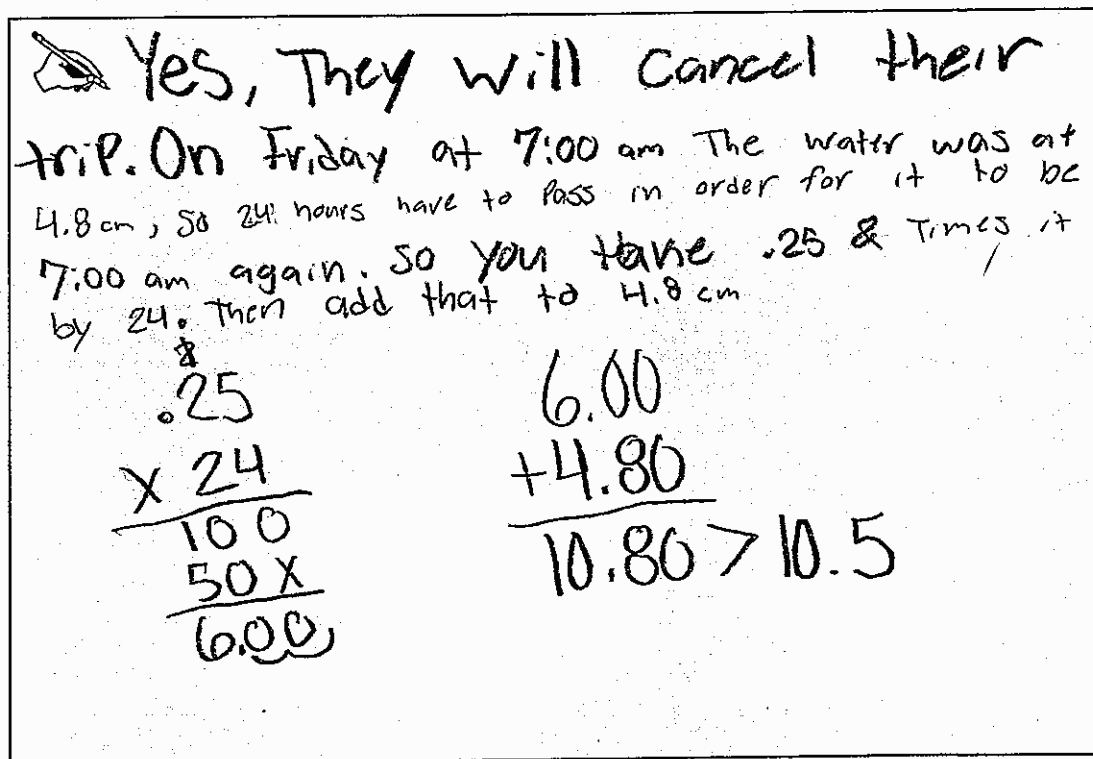 Yes, They will cancel their
trip. On Friday at 7:00 am The water was at
4.8 cm, so 24 hours have to Pass in order for it to be
7:00 am again. so you take .25 & Times it
by 24. Then add that to 4.8 cm
.25
x 24
100
50X
6.00
6.00
+4.80
10.80 > 10.5